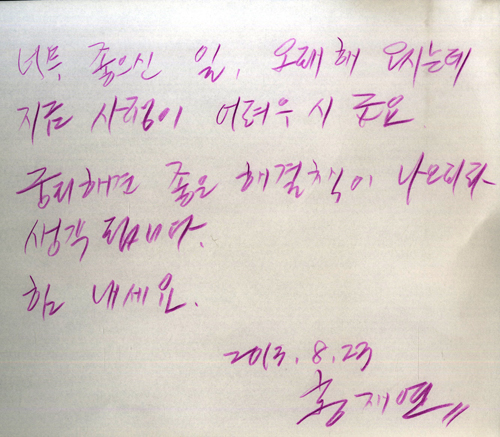 너무 좋으신 일, 오래해 오시는데
지금 사정이 어려우시군요
궁리해보면 좋은 해결책이 나오리라
생각 됩니다.
힘 내세요.
2013. 8. 23
황재연